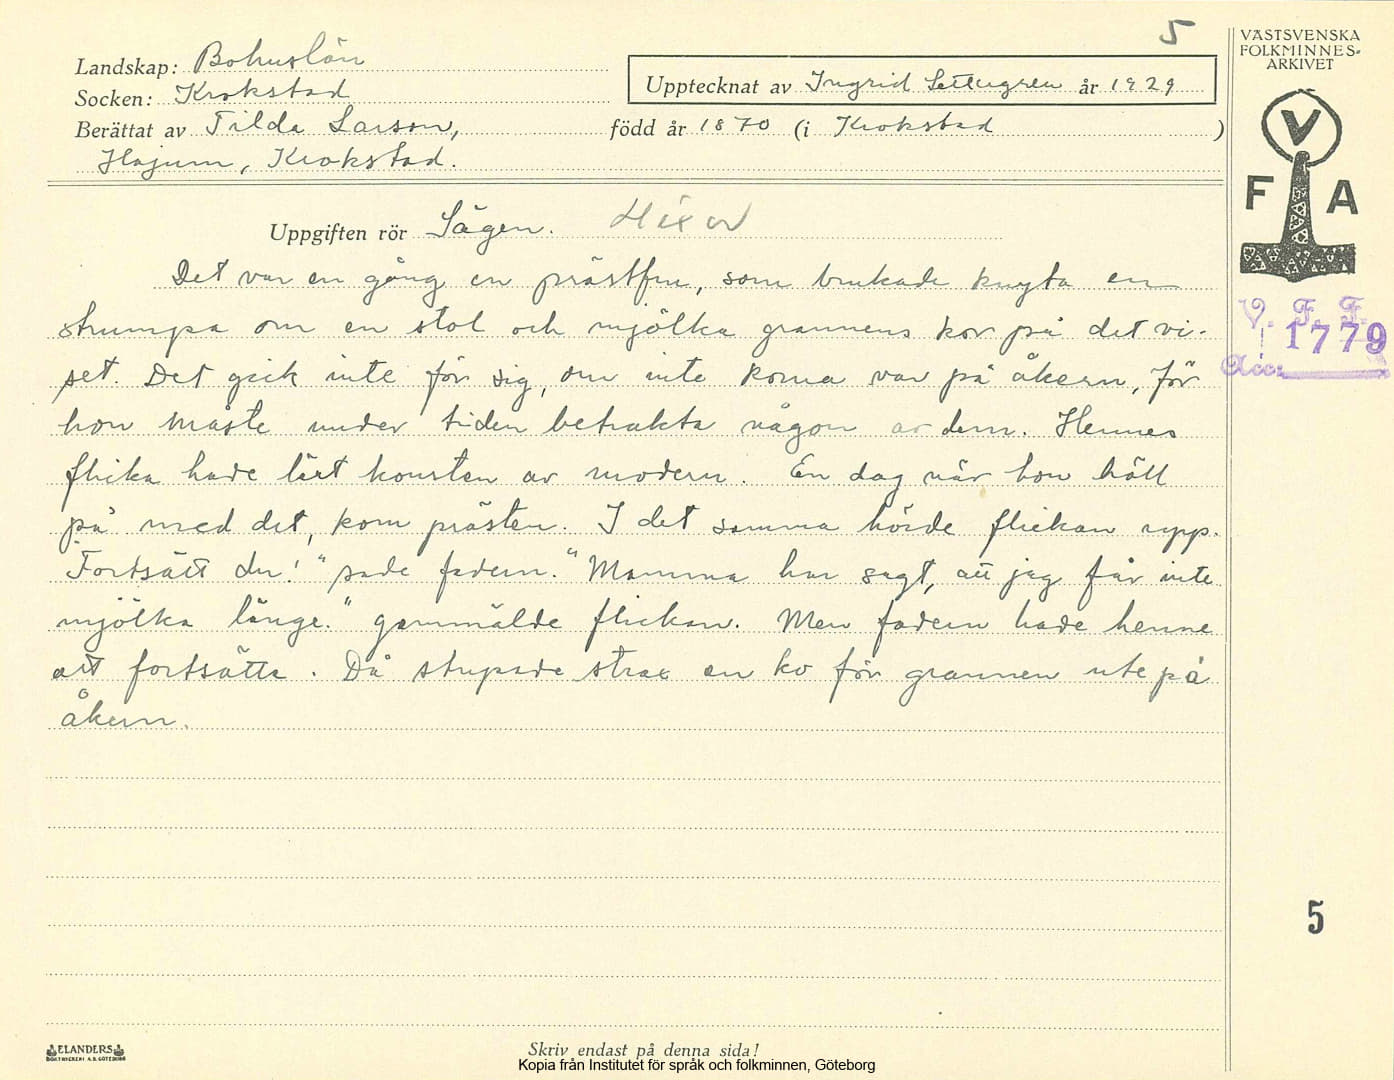 5
Landskap: Bohuslän
Socken: Krokstad
Upptecknat av Ingrid år 1929
Berättat av Tilda Larson, född år 1870 (i Krokstad )
Hajum, Krokstad.
Uppgiften rör Sägen. Häxor
Det var en gång en prästfru, som brukade knyta en
strumpa om en stol och mjölka grannens kor på det vi-
set. Det gick inte för sig, om inte korna var på åkern, för
hon måste under tiden betrakta någon av dem. Hennes
flicka hade lärt konsten av modern. En dag när hon höll
på med det, kom prästen. I det samma hörde flickan upp.
"Fortsätt du!" sade fadern. "Mamma har sagt, att jag får inte
mjölka länge." genmälde flickan. Men fadern bade henne
att fortsätta. Då stupade strax en ko för grannen ute på
åkern.
VÄSTSVENSKA
FOLKMINNES-
ARKIVET
V
F A
V. F. F.
1779
Acc:
5
ELANDERS
BOKTRYCKERI A.B. GÖTEBORG
Skriv endast på denna sida!
Kopia från Institutet för språk och folkminnen, Göteborg